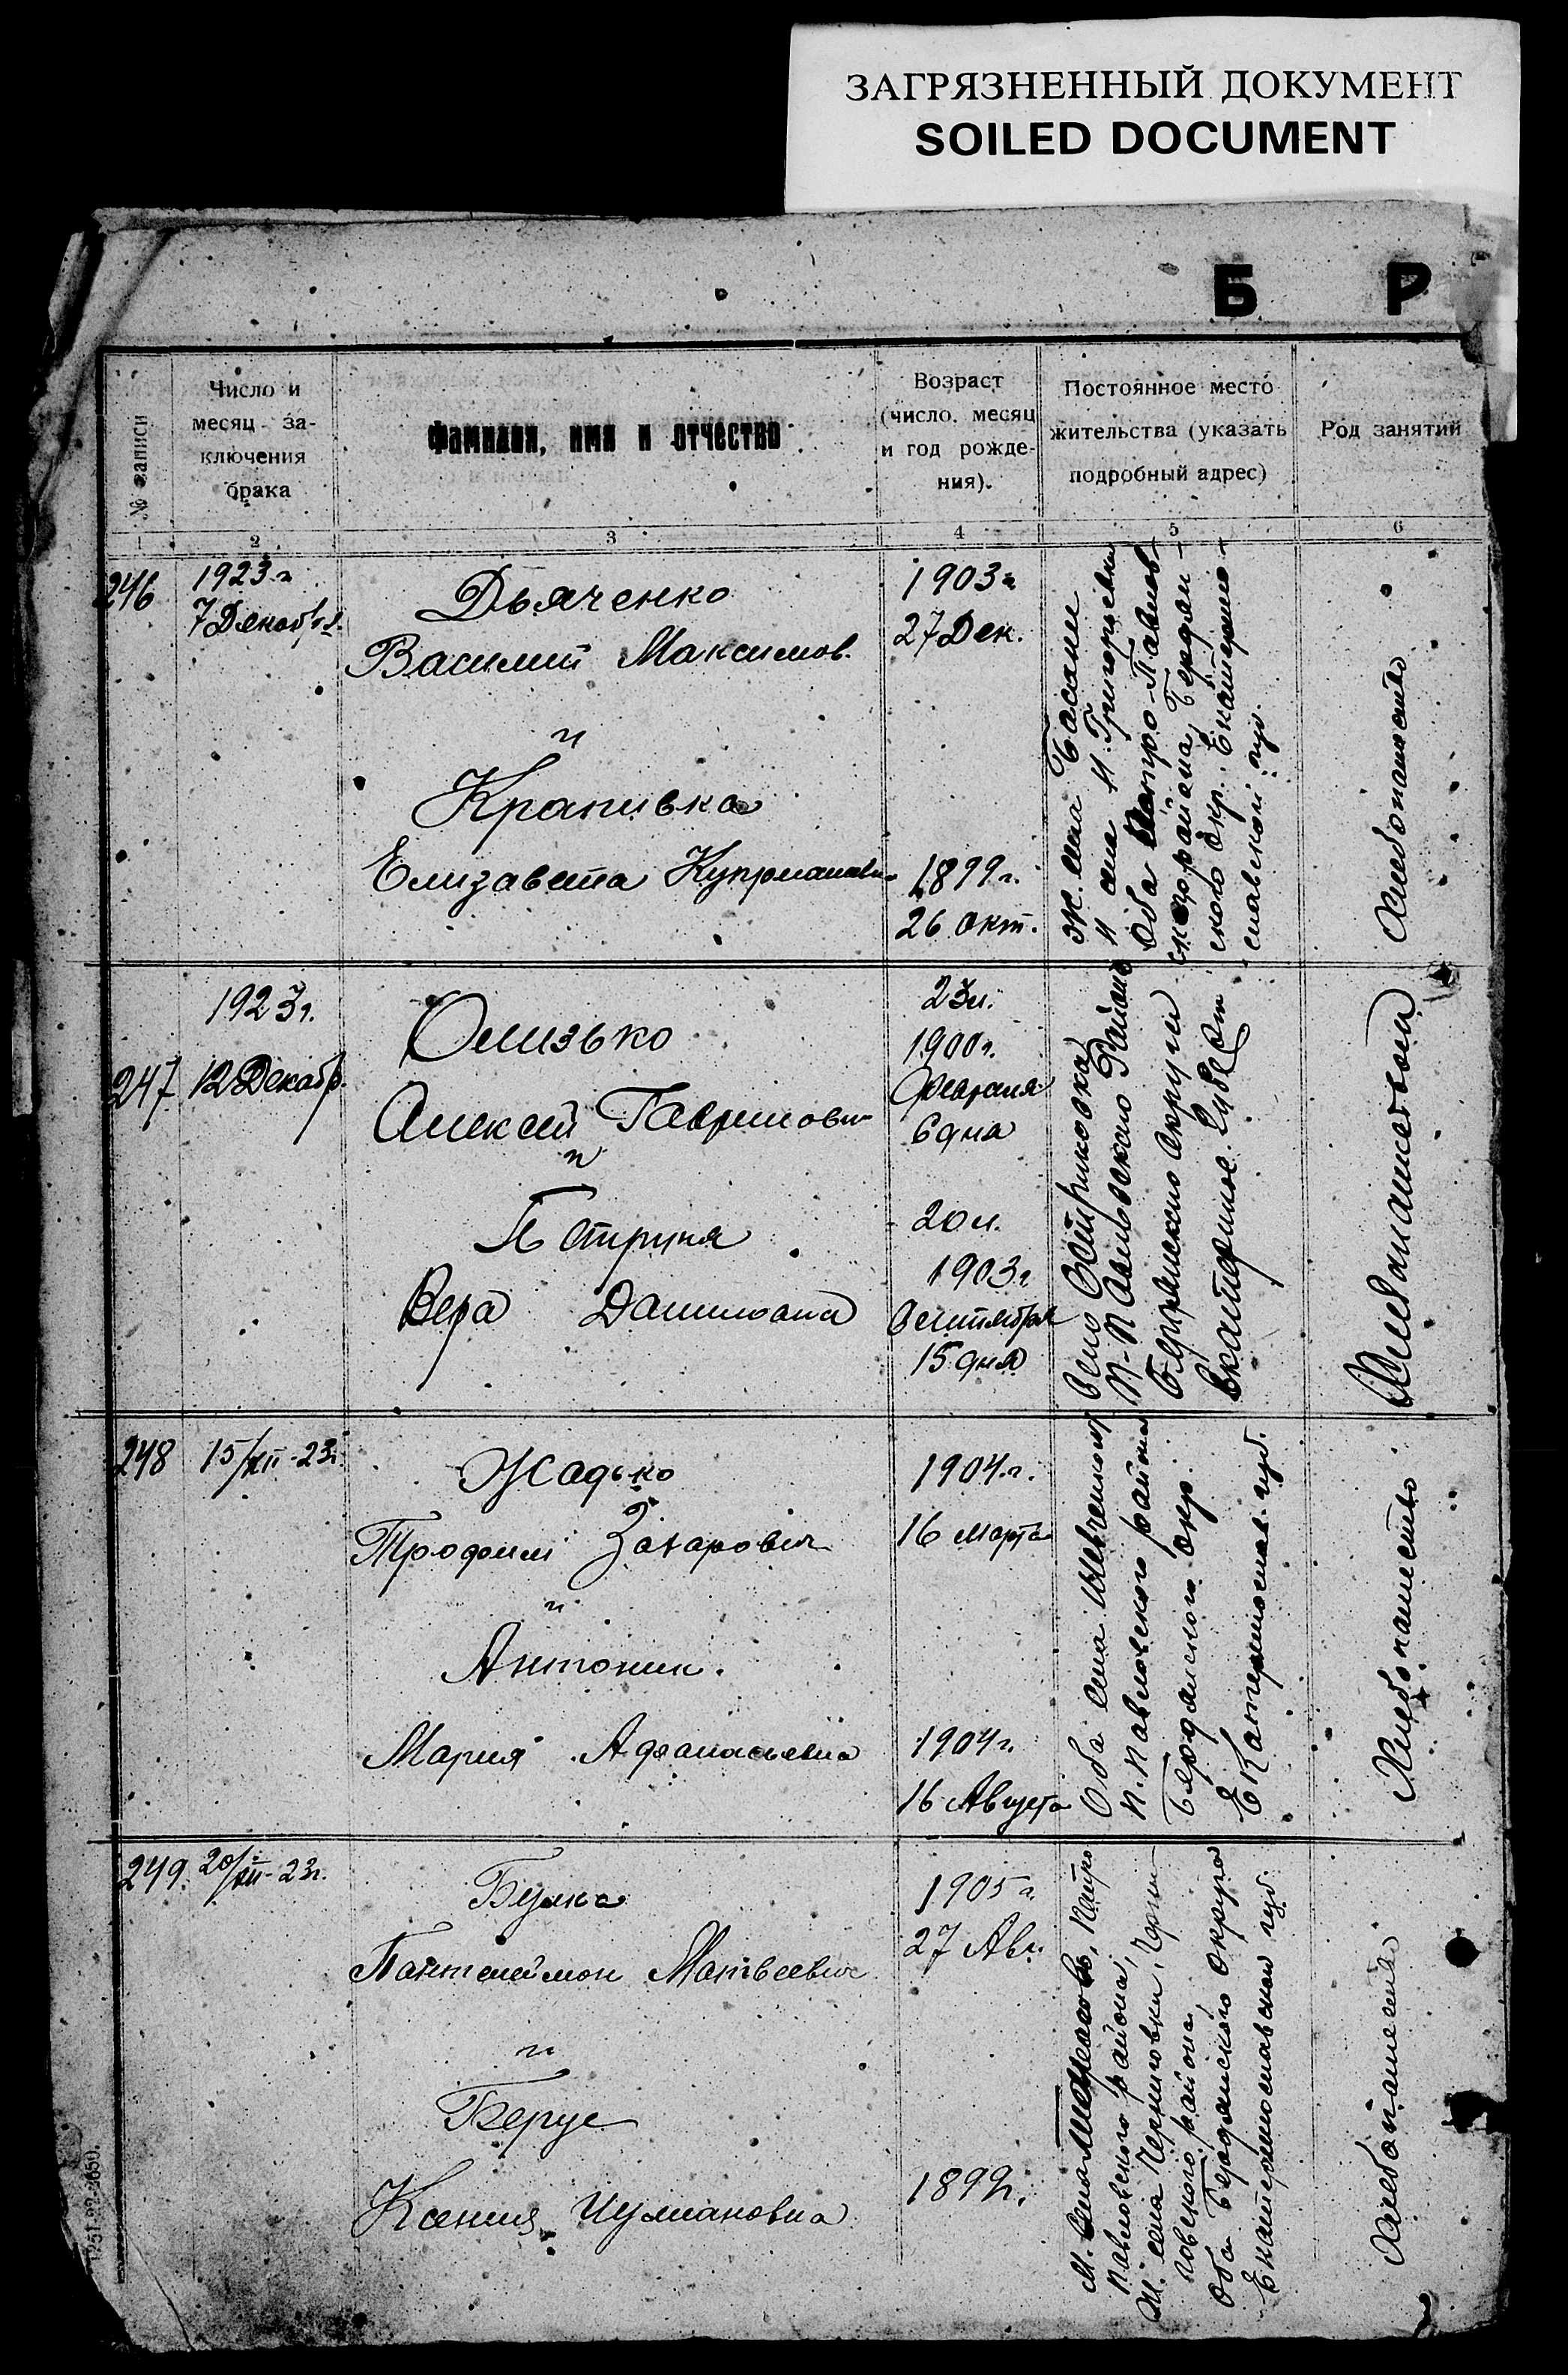 ЗАГРЯЗНЕННЫЙ ДОКУМЕНТ
SOILED DOCUMENT
Б Р
№ записи
Число и
месяц за-
ключения
брака
Фамилия, имя и отчество
Возраст
(число, месяц
и год рожде-
ния).
Постоянное место
жительства (указать
подробный адрес)
Род занятий
1 2 3 4 5 6
246
1923 г
7 Декабря.
Дьяченко
Василий Максимов.
и
Крапивка
Елизавета
1903 г
27 Дек.
1899 г.
26 окт.
Ж. села Басани
и села Н. Григорьевки
Оба Петро-Павлов-
ского района, Бердян-
ского Окр. Екатерино-
славской губ.
Хлебопашество
247
1923 г.
12 Декабр.
Олизько
Алексей Гаврилович
и
Вера Даниловна
23 л.
1900 г.
Февраля
6 дня
20 л.
1903 г
Сентября
15 дня
Село
П-Павловского Района
Бердянского Округи
Екатеринос. Губе
248
15/XII-23 г.
Жадько
Трофим Захарович
и
Антонин.
Мария Афанасьевна
1904 г.
16 марта
1904 г.
16 Августа
Оба села
П. Павловского района
Бердянского окр.
Екатеринослав. губ.
Хлебопашество
249.
20/XII-23 г.
Булка
Пантелеймон Матвеевич
и
Берус
Ксения
1905 г.
27 Авг.
1899 г.
М. села Петро
павловского района,
Ж. села Черниговки, Черни-
говского района,
Оба Бердянского округа
Екатеринославской губ.
Хлебопашество